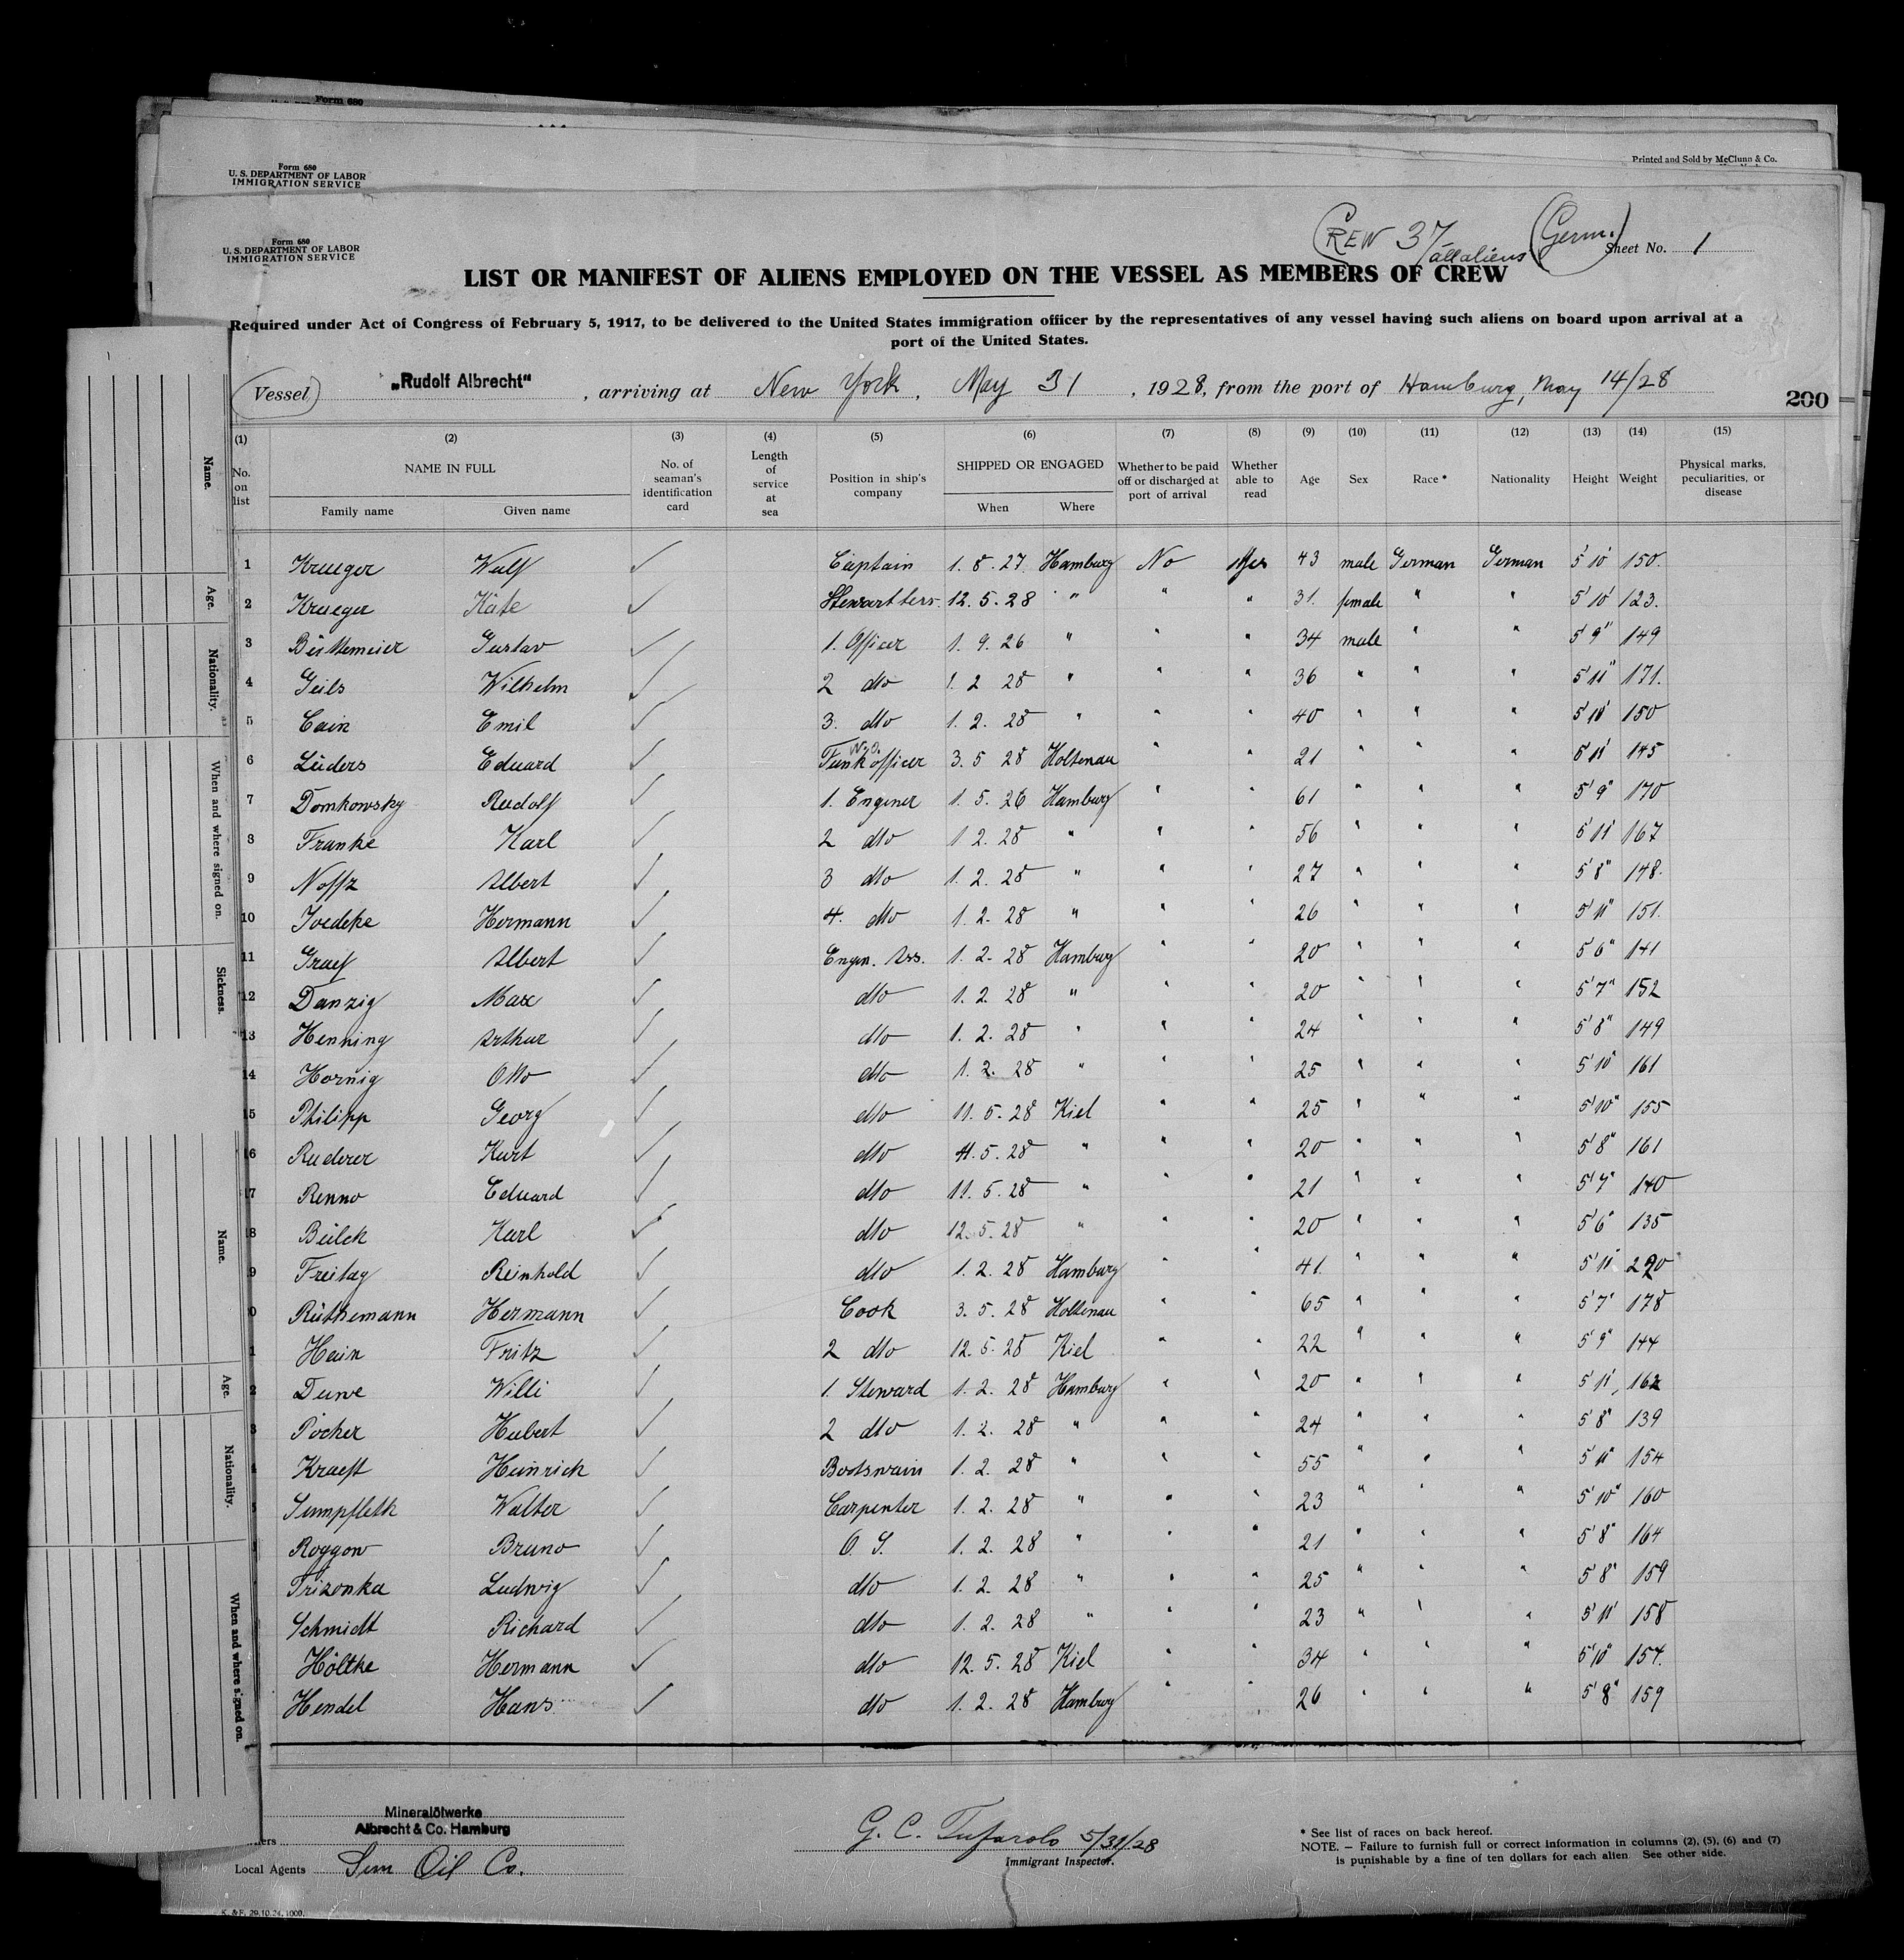 Form 680
Form 680
U. S. DEPARTMENT OF LABOR
IMMIGRATION SERVICE
Printed and Sold by McClunn & Co.
Form 680
U. S. DEPARTMENT OF LABOR
IMMIGRATION SERVICE
CREW 37 all aliens (Germ.)
Sheet No. 1
LIST OR MANIFEST OF ALIENS EMPLOYED ON THE VESSEL AS MEMBERS OF CREW
Required under Act of Congress of February 5, 1917, to be delivered to the United States immigration officer by the representatives of any vessel having such aliens on board upon arrival at a
port of the United States.
Vessel „Rudolf Albrecht“, arriving at New York, May 31, 1928, from the port of Hamburg, May 14/28
200
(1) (2) (3) (4) (5) (6) (7) (8) (9) (10) (11) (12) (13) (14) (15)
No. on list NAME IN FULL Family name Given name No. of seaman's identification card Length of service at sea Position in ship's company SHIPPED OR ENGAGED When Where Whether to be paid off or discharged at port of arrival Whether able to read Age Sex Race * Nationality Height Weight Physical marks, peculiarities, or disease
1 Krueger Wulf ✓ Captain 1. 8. 27. Hamburg No Yes 43 male German German 5' 10" 150.
2 Krueger Käte ✓ 12. 5. 28 " " " 31. female " " 5' 10" 123.
3 Gustav ✓ 1. Officer 1. 9. 26 " " " 34 male " " 5' 9" 149
4 Geils Wilhelm ✓ 2 dto 1. 2 28 " " " 36 " " " 5' 11" 171.
5 Cain Emil ✓ 3. dto 1. 2. 28 " " " 40 " " " 5' 10" 150
6 Lüders Eduard ✓ Funkofficer 3. 5 28 Holtenau " " 21 " " " 5' 11" 145
7 Domkowsky Rudolf ✓ 1. Enginer 1. 5. 26 Hamburg " " 61 " " " 5' 9" 170
8 Franke Karl ✓ 2 dto 1 2. 28 " " " 56 " " " 5' 11" 167
9 Noffz Albert ✓ 3 dto 1. 2. 28 " " " 27 " " " 5' 8" 148.
10 Joedeke Hermann ✓ 4. dto 1. 2. 28 " " " 26 " " " 5' 11" 151.
11 Graef Albert ✓ Engin. Ass. 1. 2. 28 Hamburg " " 20 " " " 5' 6" 141
12 Danzig Max ✓ dto 1. 2. 28 " " " 20 " " " 5' 7" 152
13 Henning Arthur ✓ dto 1. 2. 28 " " " 24 " " " 5' 8" 149
14 Hornig Otto ✓ dto 1. 2. 28 " " " 25 " " " 5' 10" 161
15 Philipp Georg ✓ dto 11. 5. 28 Kiel " " 25 " " " 5' 10" 155
6 Ruderer Kurt ✓ dto 11. 5. 28 " " " 20 " " " 5' 8" 161
17 Renno Eduard ✓ dto 11. 5. 28 " " " 21 " " " 5' 7" 140
8 Bülck Karl ✓ dto 12. 5. 28 " " " 20 " " " 5' 6" 135
9 Freitag Reinhold ✓ dto 1. 2. 28 Hamburg " " 41 " " " 5' 11" 220
0 Rüthemann Hermann ✓ Cook 3. 5. 28 Holtenau " " 65 " " " 5' 7" 178
1 Hein Fritz ✓ 2 dto 12. 5. 28 Kiel " " 22 " " " 5' 9" 144
2 Duwe Willi ✓ 1. Steward 1. 2. 28 Hamburg " " 20 " " " 5' 11" 162
3 Pöcher Hubert ✓ 2 dto 1. 2. 28 " " " 24 " " " 5' 8" 139
4 Kraeft Heinrich ✓ Bootswain 1. 2. 28 " " " 55 " " " 5' 11" 154
5 Sumpfleth Walter ✓ Carpenter 1. 2. 28 " " " 23 " " " 5' 10" 160
Roggow Bruno ✓ O. S. 1. 2. 28 " " " 21 " " " 5' 8" 164
Trizonka Ludwig ✓ dto 1. 2. 28 " " " 25 " " " 5' 8" 159
Schmidt Richard ✓ dto 1. 2. 28 " " " 23 " " " 5' 11" 158
Höltke Hermann ✓ dto 12. 5. 28 Kiel " " 34 " " " 5' 10" 154.
Hendel Hans ✓ dto 1. 2. 28 Hamburg " " 26 " " " 5' 8" 159
Mineralölwerke
Albrecht & Co. Hamburg
Local Agents Sun Oil Co.
G. C. Tufarolo 5/31/28
Immigrant Inspector.
* See list of races on back hereof.
NOTE. — Failure to furnish full or correct information in columns (2), (5), (6) and (7)
is punishable by a fine of ten dollars for each alien See other side.
K. & F. 29.10.24. 1000.
Name.
Age.
Nationality.
When and where signed on.
Sickness.
Name.
Age.
Nationality.
When and where signed on.